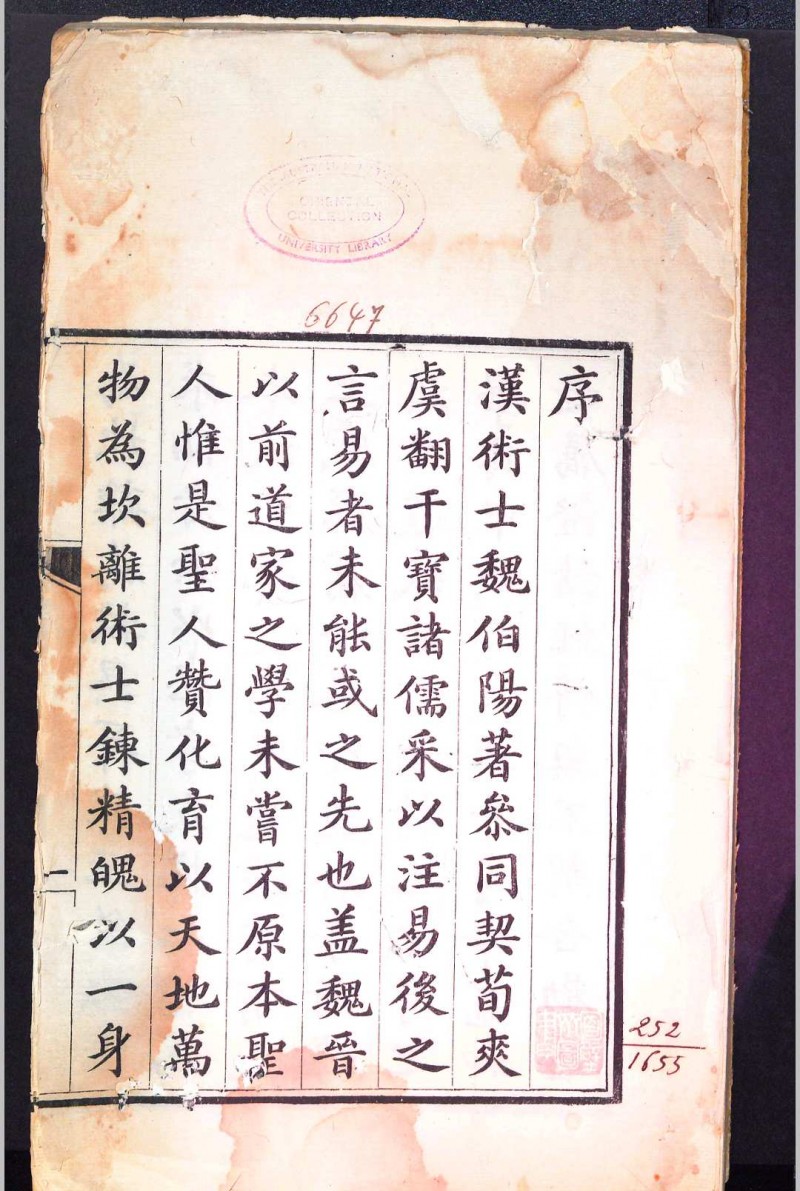 ORIENTAL
COLLECTION
UNIVERSITY LIBRARY
6647
序
漢術士魏伯陽著叅同契荀爽
虞翻干寶諸儒采以注易後之
言易者未能或之先也盖魏晉
以前道家之學未嘗不原本聖
人惟是聖人贊化育以天地萬
物為坎離術士鍊精魄以一身
二
252
1655